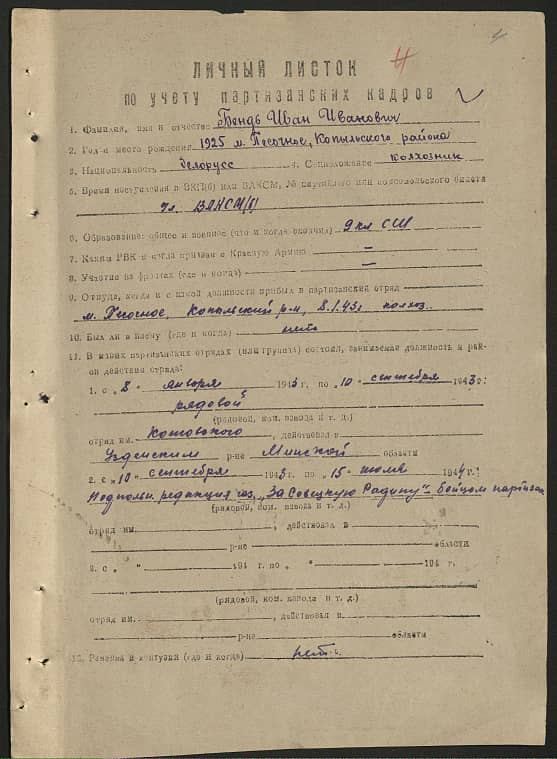 4
ЛИЧНЫЙ ЛИСТОК
по учету партизанских кадров
1. Фамилия, имя и отчество Бендь Иван Иванович
2. Год и место рождения 1925 м. Песочное, Копыльского района
3. Национальность белорусс 4. Соцположение колхозник
5. Время поступления в ВКП(б) или ВЛКСМ, № партийного или комсомольского билета
Чл. ВЛКСМ
6. Образование: общее и военное (что и когда окончил) 9 кл СШ
7. Каким РВК и когда призван в Красную Армию —
8. Участие на фронтах (где и когда) —
9. Откуда, когда и с какой должности прибыл в партизанский отряд
м. Песочное, Копыльский р-н, 8.1.43г колхоз.
10. Был ли в плену (где и когда) нет
11. В каких партизанских отрядах (или группах) состоял, занимаемая должность и рай-
он действия отряда:
1. с „8" января 1943 г. по „10" сентября 1943 г:
рядовой
(рядовой, ком. взвода и т. д.)
отряд им. Котовского, действовал в
Узденском р-не Минской области
2. с „10" сентября 1943 г. по „15" июля 1944 г:
Подпольн. редакция газ. „За Совецкую Радзiму" – бойцом партизан
(рядовой, ком. взвода и т. д.)
отряд им. , действовал в
р-не области
2. с „ " 194 г. по „ " 194 г.
(рядовой, ком. взвода и т. д.)
отряд им. , действовал в
р-не области
12. Ранения и контузии (где и когда) нет.